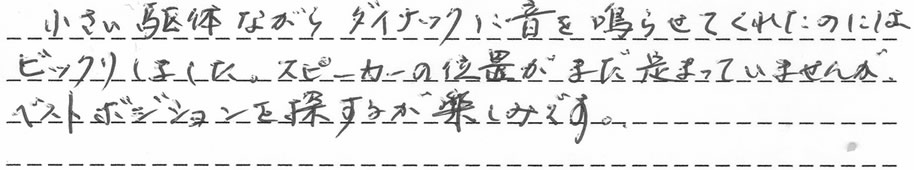 小さい駆体ながらダイナックに音を鳴らせてくれたのには
ビックリしました。スピーカーの位置がまだ定まっていませんが、
ベストポジションを探するが楽しみです。